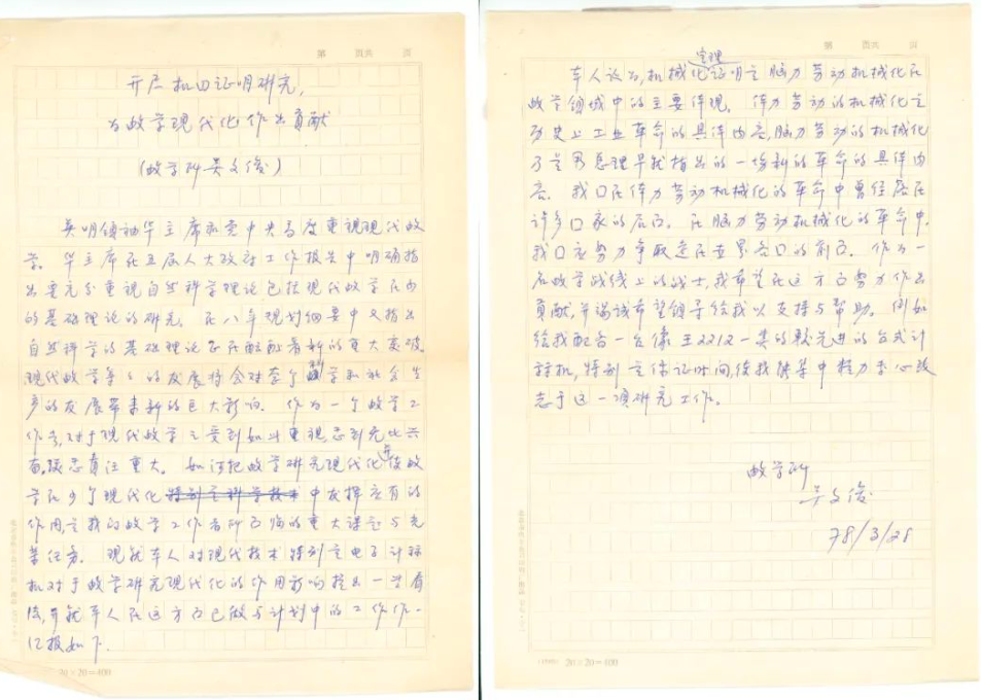 第 页共 页
开展机四证明研究,
为数学现代化作出貢献
(数学所吴文俊)
英明领袖华主席和党中央高度重视现代数
学。华主席在五届人大政府工作报告中明确指
出要充分重视自然科学理论包括现代数学在内
的基础理论的研究。在八年规划纲要中又指出
自然科学的基础理论正在酝酿着新的重大突破。
现代数学等等的发展将会对整个科学和社会生
产的发展带来新的巨大影响。作为一个数学工
作者,对于现代数学之受到如此重视,感到无比兴
奋,颇感責任重大。如何把数学研究现代化并使数
学在多个现代化中发挥应有的
作用,是我们数学工作者所面临的重大课题与光
荣任务。现就本人对现代技术特别是电子计标
机对于数学研究现代化的作用影响提出一些看
法,并就本人在这方面已做与计划中的工作作一
汇报如下.
20×20=400
第 页共 页
本人认为,机械化定理证明是脑力劳动机械化在
数学领域中的主要体现。体力劳动的机械化是
历史上工业革命的具体内容,脑力劳动的机械化
乃是周总理早就指出的一场新的革命的具体内
容。我囗在体力劳动机械化的革命中曾经落在
许多囗家的后面。在脑力劳动机械化的革命中,
我囗应努力争取走在世界各囗的前面。作为一
名数学战线上的战士,我希望在这方面努力作出
貢献,并竭诚希望领导给我以支持与帮助。例如
给我配备一台像王2212一类的较先进的台式计
标机,特别是保证时间,使我能集中精力专心致
志于这一项研究工作。
数学所
吴文俊
78/3/28
20×20=400